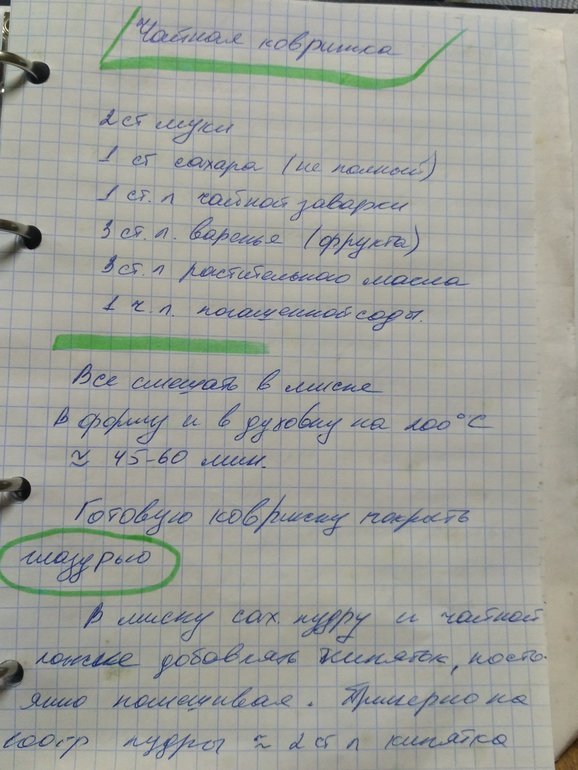 Чайная коврижка
2 ст муки
1 ст сахара (не полный)
1 ст. л чайной заварки
3 ст. л. варенье (фрукта)
3 ст. л растительного масла
1 ч. л. погашенной соды.
Все смешать в миске
В форму и в духовку на 200°С
≈ 45-60 мин.
Готовую коврижку покрыть
глазурью
В миску сах. пудру и чайной
ложке добавлять кипяток, посто-
янно помешивая. Примерно на
200гр пудры ≈ 2 ст л кипятка